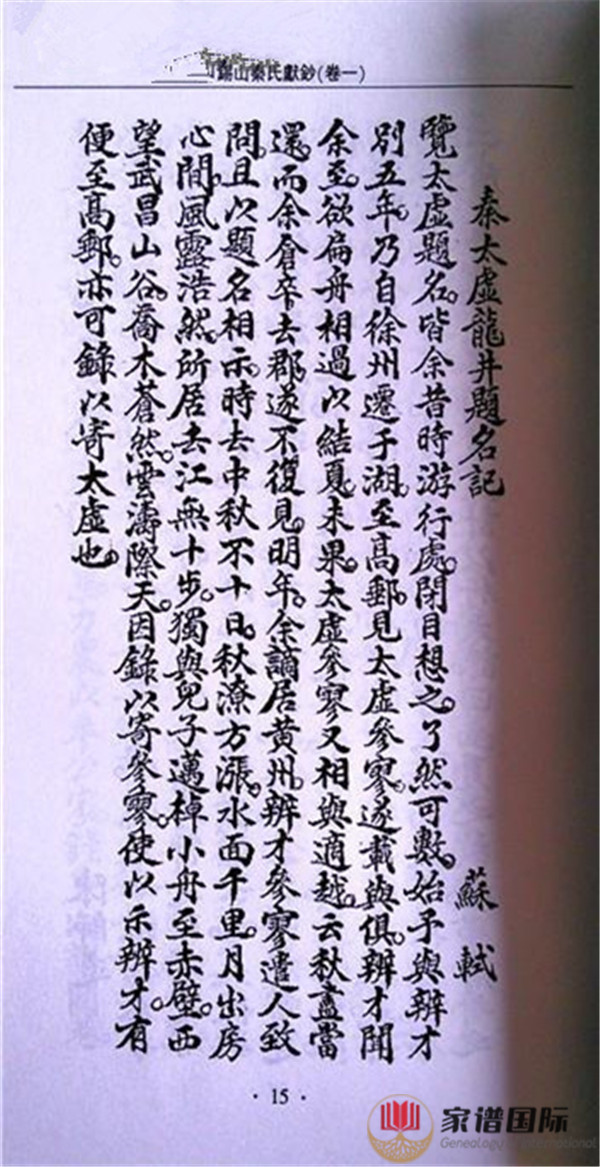 錫山秦氏獻鈔(卷一)
秦太虛龍井題名記
蘇軾
覽太虛題名。皆余昔時游行處。閉目想之。了然可數。始予與辨才
別五年。乃自徐州遷于湖。至高郵見太虛參寥。遂載與俱。辨才聞
余至。欲扁舟相過以結夏。未果。太虛參寥又相與適越。云秋盡當
還。而余倉卒去郡。遂不復見。明年。余謫居黃州。辨才參寥遣人致
問。且以題名相示。時去中秋不十日。秋潦方漲。水面千里。月出房
心間。風露浩然。所居去江無十步。獨與兒子邁棹小舟至赤壁。西
望武昌山谷。喬木蒼然。雲濤際天。因錄以寄參寥。使以示辨才。有
便至高郵。亦可錄以寄太虛也。
· 15 ·
家谱国际
Genealogy International